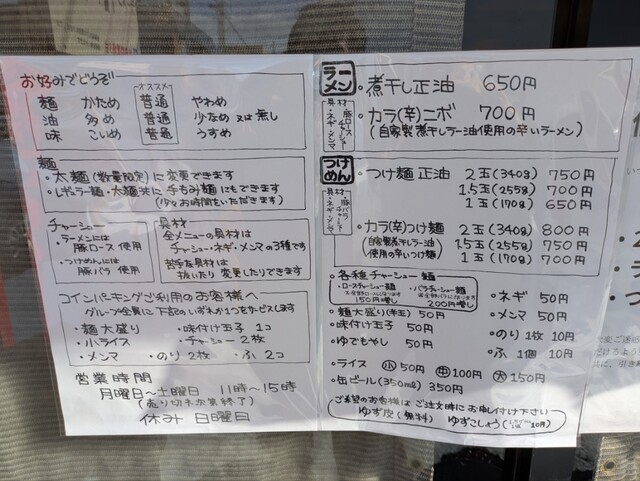 お好みでどうぞ
オススメ
麺 かため 普通 やわめ
油 多め 普通 少なめ 又は 無し
味 こいめ 普通 うすめ
麺
・太麺(数量限定)に変更できます
・レギュラー麺・太麺共に 手もみ麺にもできます
(少々お時間をいただきます)
チャーシュー
・ラーメンには
豚ロース 使用
・つけめんには
豚バラ 使用
具材
全メニューの具材は
チャーシュー・ネギ・メンマの3種です
苦手な具材は
抜いたり 変更したりできます
コインパーキングご利用のお客様へ
グループ全員に 下記のいずれか1つをサービスします
・麺大盛り ・味付け玉子 1コ
・小ライス ・チャーシュー 2枚
・メンマ ・のり 2枚 ・ふ 2コ
営業時間
月曜日〜土曜日 11時〜15時
(売り切れ次第終了)
休み 日曜日
ラーメン
具材
・豚ロースチャーシュー
・ネギ・メンマ
・煮干し正油 650円
・カラ(辛)ニボ 700円
(自家製煮干しラー油使用の辛いラーメン)
つけめん
具材
・豚バラチャーシュー
・ネギ・メンマ
・つけ麺 正油 2玉(340g) 750円
1.5玉(255g) 700円
1玉(170g) 650円
・カラ(辛)つけ麺 2玉(340g) 800円
(自家製煮干しラー油 1.5玉(255g) 750円
使用の辛いつけ麺) 1玉(170g) 700円
・各種チャーシュー麺
・ロースチャーシュー麺
150円増し
・バラチャーシュー麺
200円増し
・麺大盛り(半玉) 50円
・味付け玉子 50円
・ゆでもやし 50円
・ネギ 50円
・メンマ 50円
・のり 1枚 10円
・ふ 1個 10円
・ライス 小50円 中100円 大150円
・缶ビール(350ml) 350円
ご希望のお客様は ご注文時に お申し付け下さい
ゆず皮(無料) ゆずこしょう 10円